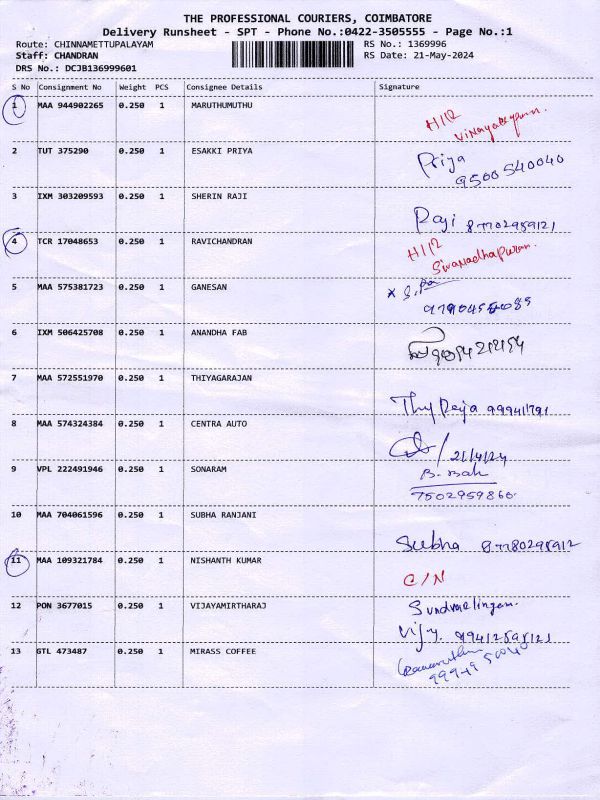 THE PROFESSIONAL COURIERS, COIMBATORE
Delivery Runsheet - SPT - Phone No.:0422-3505555 - Page No.:1
Route: CHINNAMETTUPALAYAM RS No.: 1369996
Staff: CHANDRAN RS Date: 21-May-2024
DRS No.: DCJB136999601
S No Consignment No Weight PCS Consignee Details Signature
1 MAA 944902265 0.250 1 MARUTHUMUTHU
2 TUT 375290 0.250 1 ESAKKI PRIYA Priya
9500540040
3 IXM 303209593 0.250 1 SHERIN RAJI
Raji 87702989121
4 TCR 17048653 0.250 1 RAVICHANDRAN
5 MAA 575381723 0.250 1 GANESAN
6 IXM 506425708 0.250 1 ANANDHA FAB
7 MAA 572551970 0.250 1 THIYAGARAJAN
8 MAA 574324384 0.250 1 CENTRA AUTO
21/4/24
9 VPL 222491946 0.250 1 SONARAM
7502959860
10 MAA 704061596 0.250 1 SUBHA RANJANI
Subha 87780298912
11 MAA 109321784 0.250 1 NISHANTH KUMAR
C/N
12 PON 3677015 0.250 1 VIJAYAMIRTHARAJ
Vijy.
13 GTL 473487 0.250 1 MIRASS COFFEE